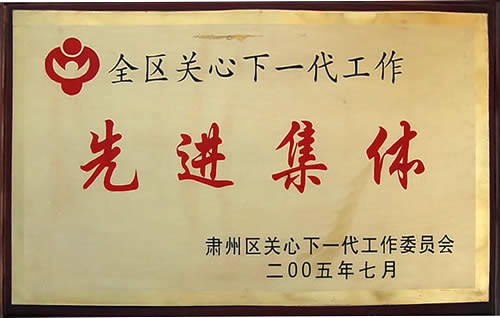 全区关心下一代工作
先进集体
肃州区关心下一代工作委员会
二00五年七月